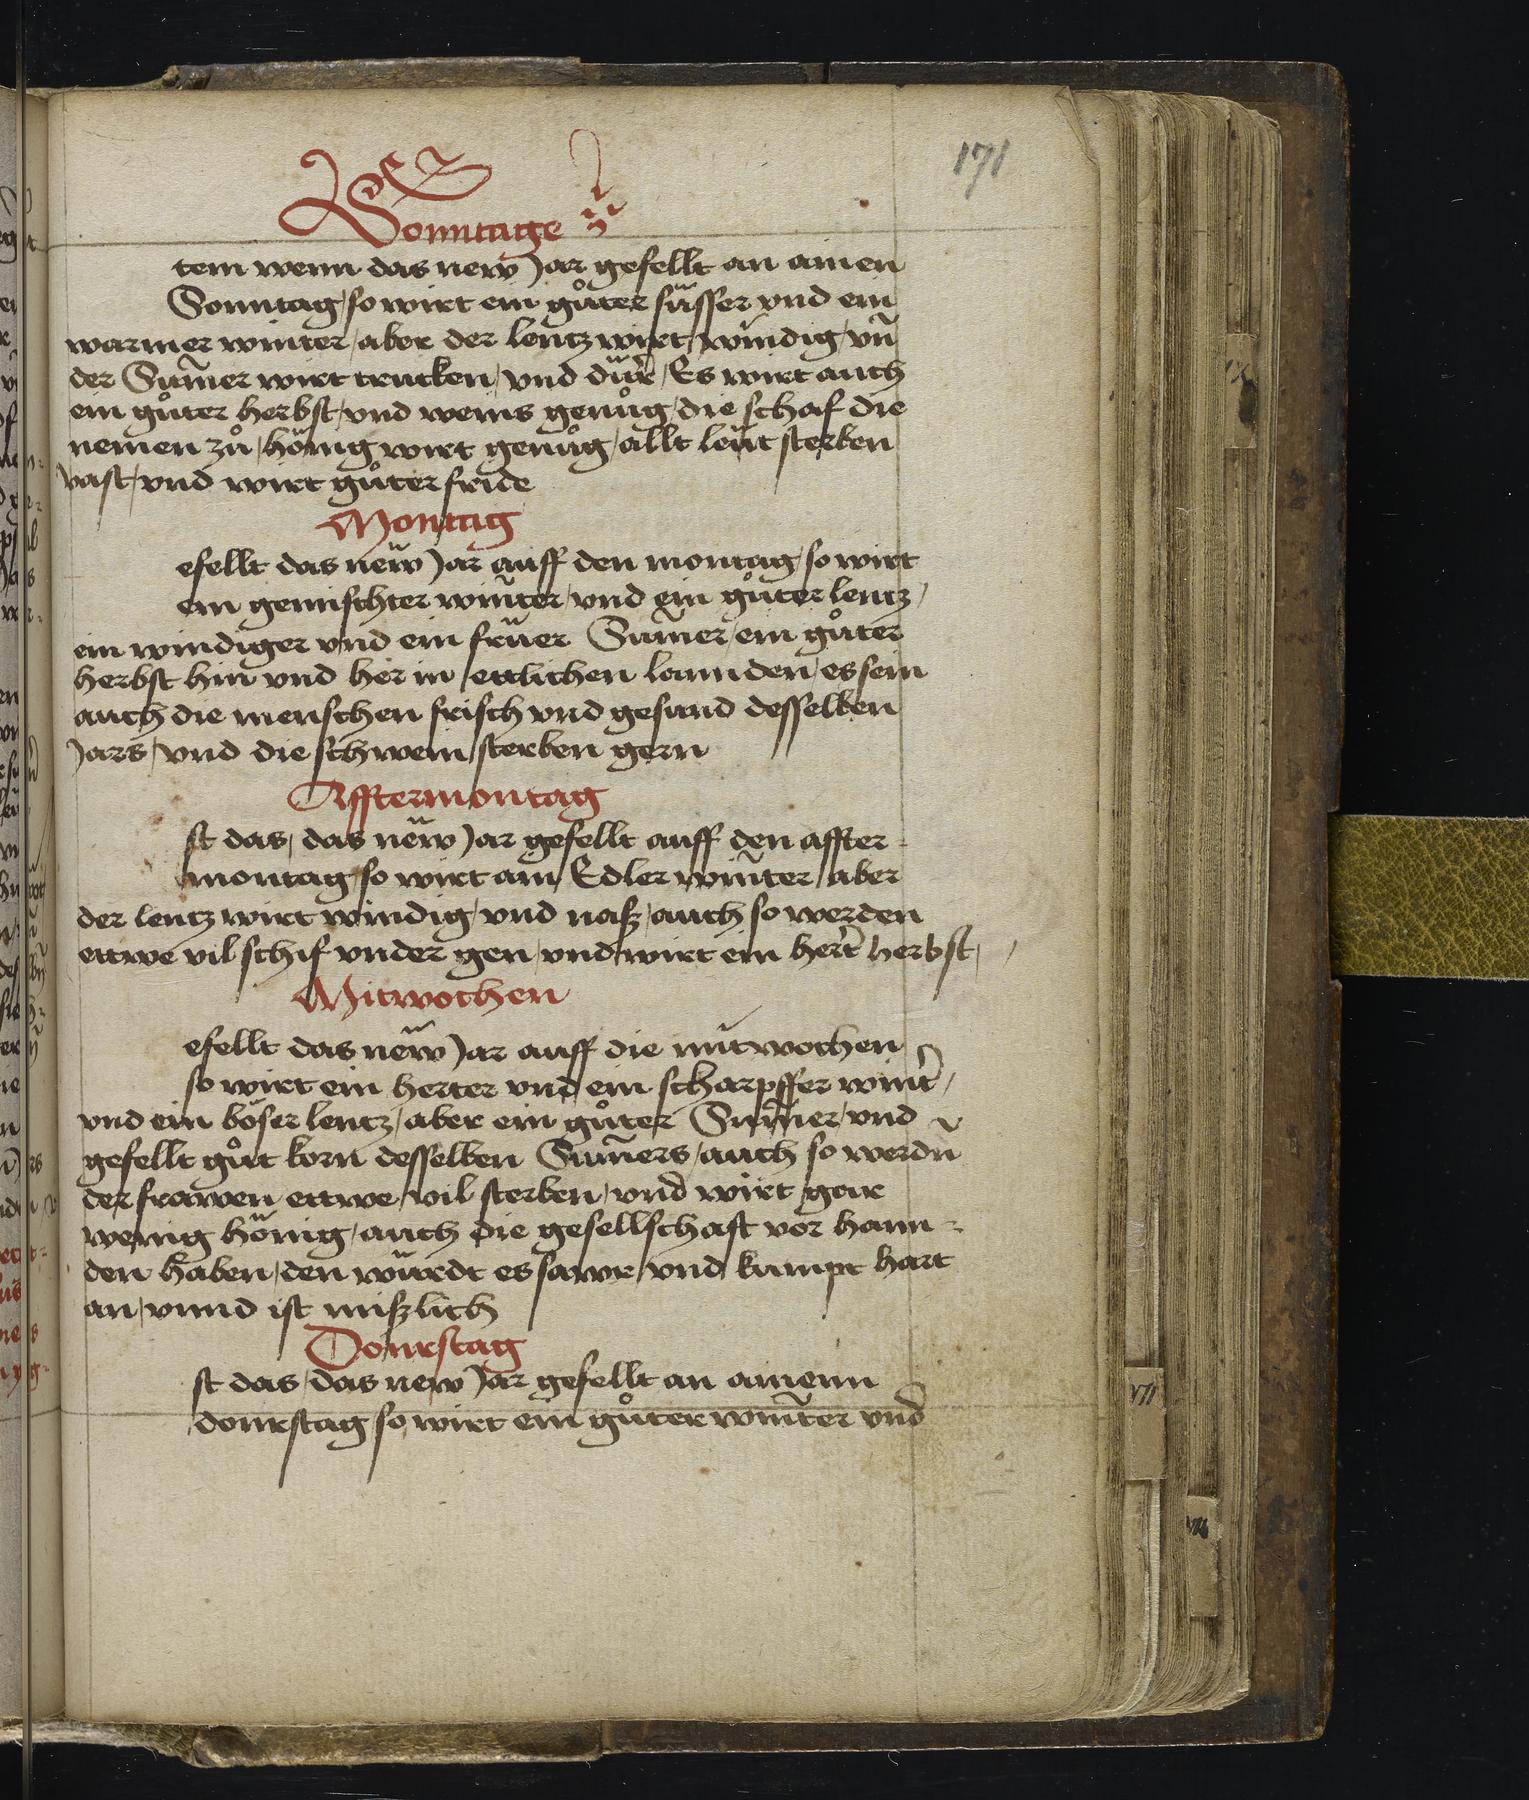 171
Sonntage
tem wenn das new Jar gefellt an ainen
Sonntag / so wirt ein gůter süsser vnd ein
warmer winter / aber der lentz wirt windig / vn̄
der Sum̄er wirt trucken / vnd dürr / Es wirt auch
ein gůter herbst / vnd weins genůg / die schaf die
nemen zů / hönig wirt genůg / allt leüt sterben
vast / vnd wirt gůter fride
Montag
efellt das neẅ Jar auff den montag / so wirt
ein gemischter winter / vnd ein gůter lentz /
ein windiger vnd ein früer Sum̄er / ein gůter
herbst hin vnd her in ettlichen lannden / es sein
auch die menschen frisch vnd gesund desselben
Jars / vnd die schwein sterben gern
Afftermontag
st das / das neẅ Jar gefellt auff den affter-
montag so wirt ain Edler winter / aber
der lentz wirt windig / vnd nasz / auch so werden
ettwe vil schif vnder gen / vnd wirt ein hert herbst /
Mitwochen
efellt das neẅ Jar auff die mitwochen
so wirt ein herter vnd ein scharpffer wint̄ /
vnd ein böser lentz / aber ein gůter Sum̄er / vnd
gefellt gůt korn desselben Sum̄ers / auch so werdn̄
der frawen ettwe vil sterben / vnd wirt gar
wenig hönig / auch die gesellschaft vor hann-
den haben / den würdt es sawr / vnd kumpt hart
an / vnnd ist miszlich
Donrstag
st das / das new Jar gefellt an ainenn
donrstag so wirt ein gůter winter vnd